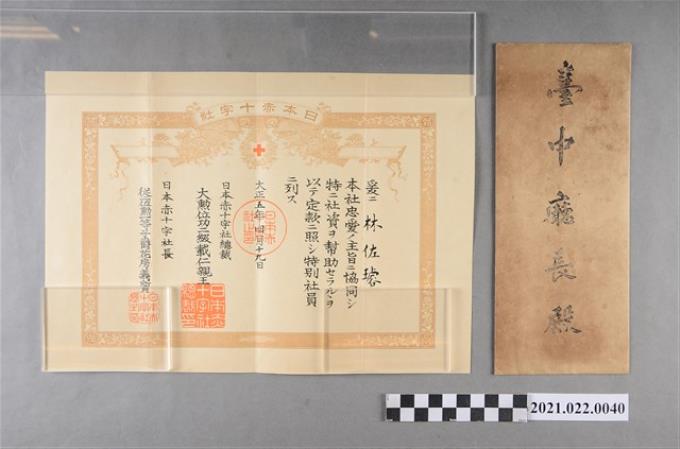 日本赤十字社
茲ニ 林佐璿
本社忠愛ノ主旨ニ協同シ
特ニ社資ヲ幇助セラルヽヲ
以テ定款ニ照シ特別社員
ニ列ス
大正五年四月十九日
日本赤十字社總裁
大勲位功二級載仁親王
日本赤十字社長
花房義質
臺中廳長殿
2021.022.0040